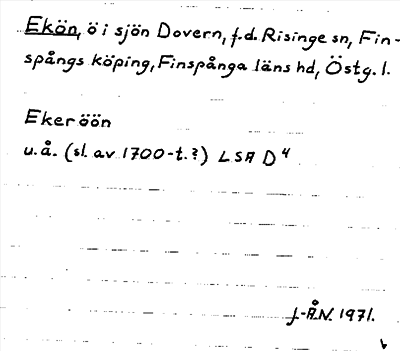 Ekön, ö i sjön Dovern, f.d. Risinge sn, Fin-
spångs köping, Finspånga läns hd, Östg. l.
Ekeröön
u.å. (sl. av 1700-t.?) LSA D⁴
J-Å.N. 1971.